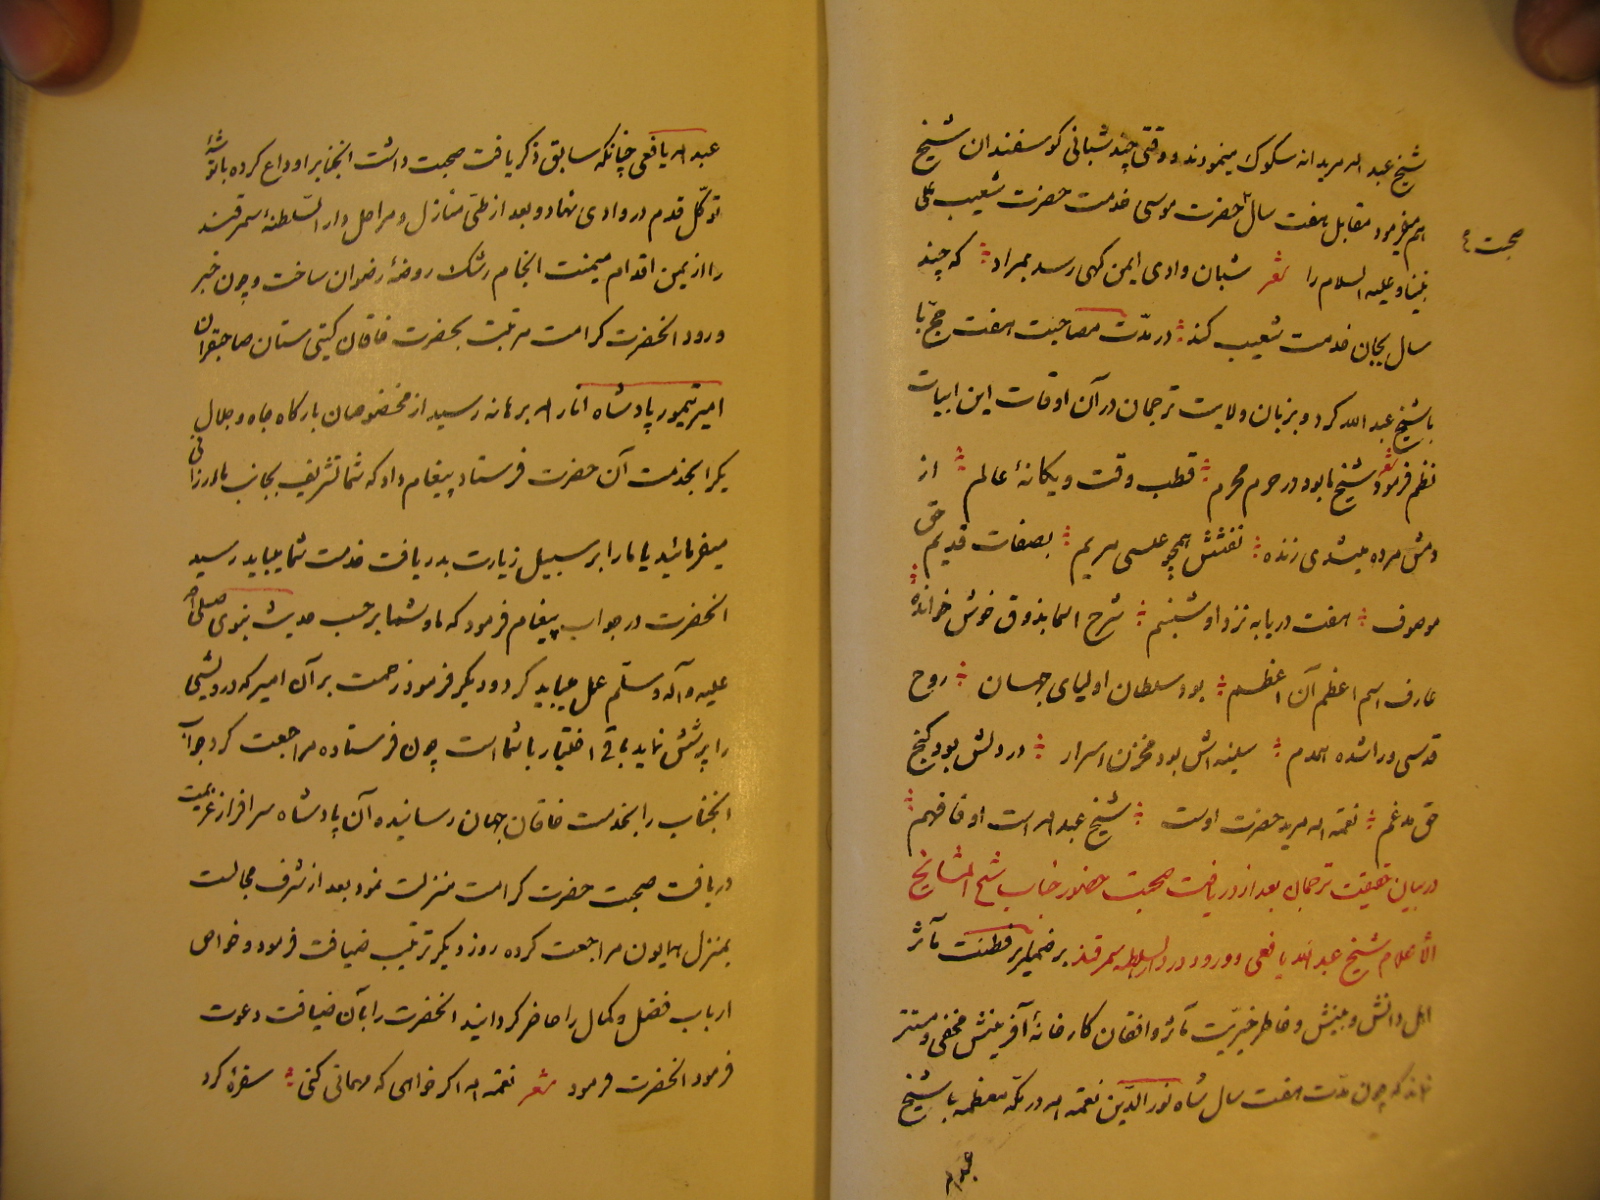 شیخ عبد اله مریدانه سکوک مینمودند و وقتی چند شبانی کوسفندان شیخ
هم میفرمود مقابل هفت سال حضرت موسی خدمت حضرت شعیب علی
نبینا و علیه السلام را شعر شبان وادی ایمن کهی رسد بمراد که چند
سال بجان خدمت شعیب کند در مدت مصاحبت هفت حج با
با شیخ عبد الله کرد و بزبان ولایت ترجمان در آن اوقات این ابیات
نظم فرمود شعر شیخ ما بود در حرم محرم قطب وقت و یکانهٔ عالم از
دمش مرده میشدی زنده نفسش همچو عیسی مریم بصفات قدیم حق
موصوف هفت دریا به نزد او شبنم شرح اسما بذوق خوش خوانده
عارف اسم اعظم آن اعظم بود سلطان اولیای جهان روح
قدسی ورا شده همدم سینه اش بود مخزن اسرار در دلش بود کنج
حق مدغم نعمة اله مرید حضرت اوست شیخ عبد اله است او فافهم
در بیان حقیقت ترجمان بعد از دریافت صحبت حضور جناب شیخ المشایخ
الاعلام شیخ عبد الله یافعی و ورود در دار السلطنه سمرقند بر ضمیر پر فطنت مآثر
اهل دانش و بینش و خاطر خبریت مآثر واقفان کارخانهٔ آفرینش مخفی و مستتر
نماند که چون مدت هفت سال شاه نور الدین نعمة اله در مکه معظمه با شیخ
عبد اله
صحبت
عبد اله یافعی چنانکه سابق ذکر یافت صحبت داشت انجناب را وداع کرده با توشهٔ
توکل قدم در وادی نهاد و بعد از طی منازل و مراحل دار السلطنهٔ سمرقند
را از یمن اقدام میمنت انجام رشک روضهٔ رضوان ساخت و چون خبر
ورود انحضرت کرامت مرتبت بحضرت خاقان کیتی ستان صاحبقران
امیر تیمور پادشاه انار اله برهانه رسید از مخصوصان بارکاه جاه و جلال
یکرا بخدمت آن حضرت فرستاد پیغام داد که شما تشریف بجانب ما ارزانی
میفرمائید یا ما را بر سبیل زیارت بدریافت خدمت شما میباید رسید
انحضرت در جواب پیغام فرمود که ما و شما بر حسب حدیث نبوی صلی اله
علیه و آله و سلم عمل میباید کرد و دیکر فرمود رحمت بر آن امیر که درویشی
را پرسش نماید باقی اختیار با شما است چون فرستاده مراجعت کرد جواب
انجناب را بخدمت خاقان جهان رسانیده آن پادشاه سرافراز عزیمت
دریافت صحبت حضرت کرامت منزلت نمود بعد از شرف مجالست
بمنزل همایون مراجعت کرده روز دیکر ترتیب ضیافت فرمود و خواص
ارباب فضل و کمال را حاضر کردانید انحضرت را بآن ضیافت دعوت
فرمود انحضرت فرمود شعر نعمة اله اکر خواهی که مهمانی کنی سفرهٔ کرد